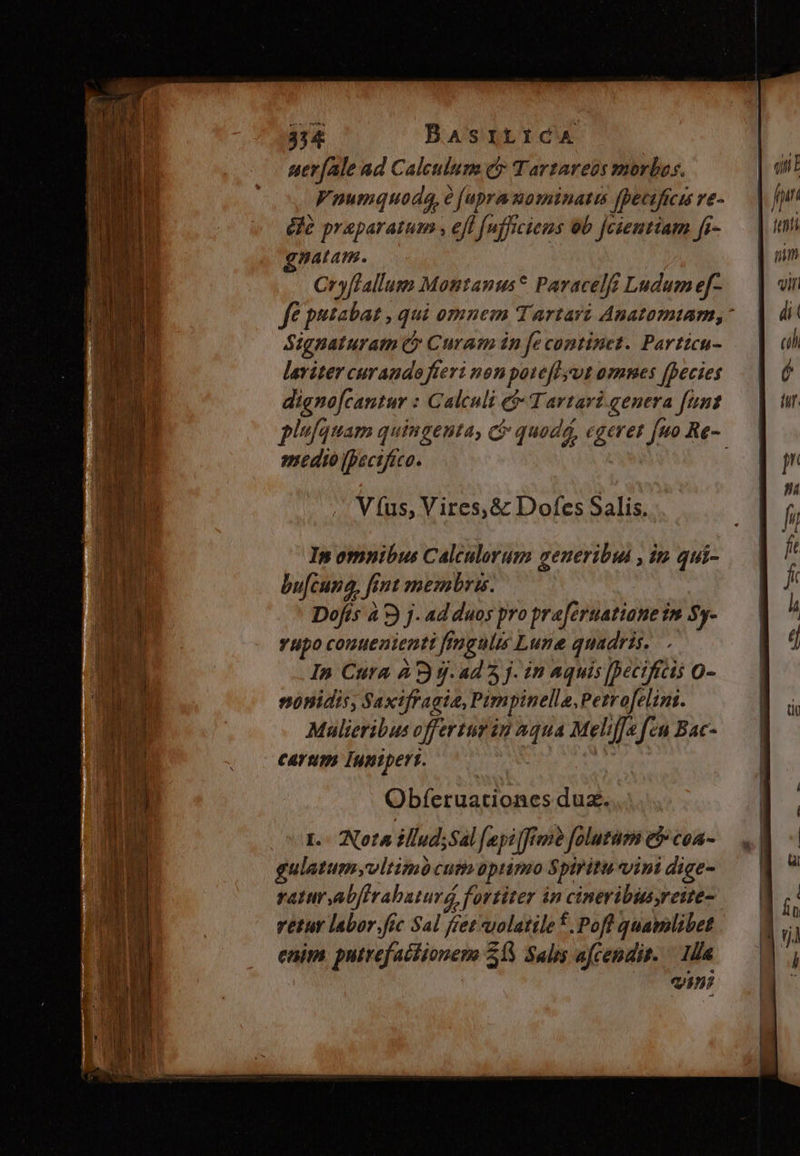 334 BASILICA
uersale ad Calculum & Tartareos morbos.
Vnumquodq, è supra nominatis specificis re-
ctè præparatum, est sufficiens ob scientiam si-
gnatam.
Crystallum Montanus* Paracelsi Ludum es-
se putabat, qui omnem Tartari Anatomiam,
Signaturam & Curam in se continet. Particu-
lariter curando fieri non potest, vt omnes species
dignoscantur : Calculi & Tartari genera sunt
plusquam quingenta, & quodq, egeret suo Re-
medio specifico.
Vsus, Vires, & Doses Salis.
In omnibus Calculorum generibus, in qui-
buscunq, sint membris.
Dosis à ℈ j. ad duos pro præseruatione in Sy-
rupo conuenienti singulis Lunæ quadris.
In Cura à ℈ ij. ad ʒ j. in aquis specificis O-
nonidis, Saxifragia, Pimpinella, Petroselini.
Mulieribus offertur in aqua Melissæ seu Bac-
carum Iuniperi.
Obseruationes duæ.
1. Nota illud; Sal sæpissimè solutum & coa-
gulatum, vltimò cum optimo Spiritu vini dige-
ratur, abstrahaturq, fortiter in cineribus, reite-
retur labor, sic Sal fiet volatile f. Post quamlibet
enim putrefactionem ʒß Salis ascendit. Illa
vini